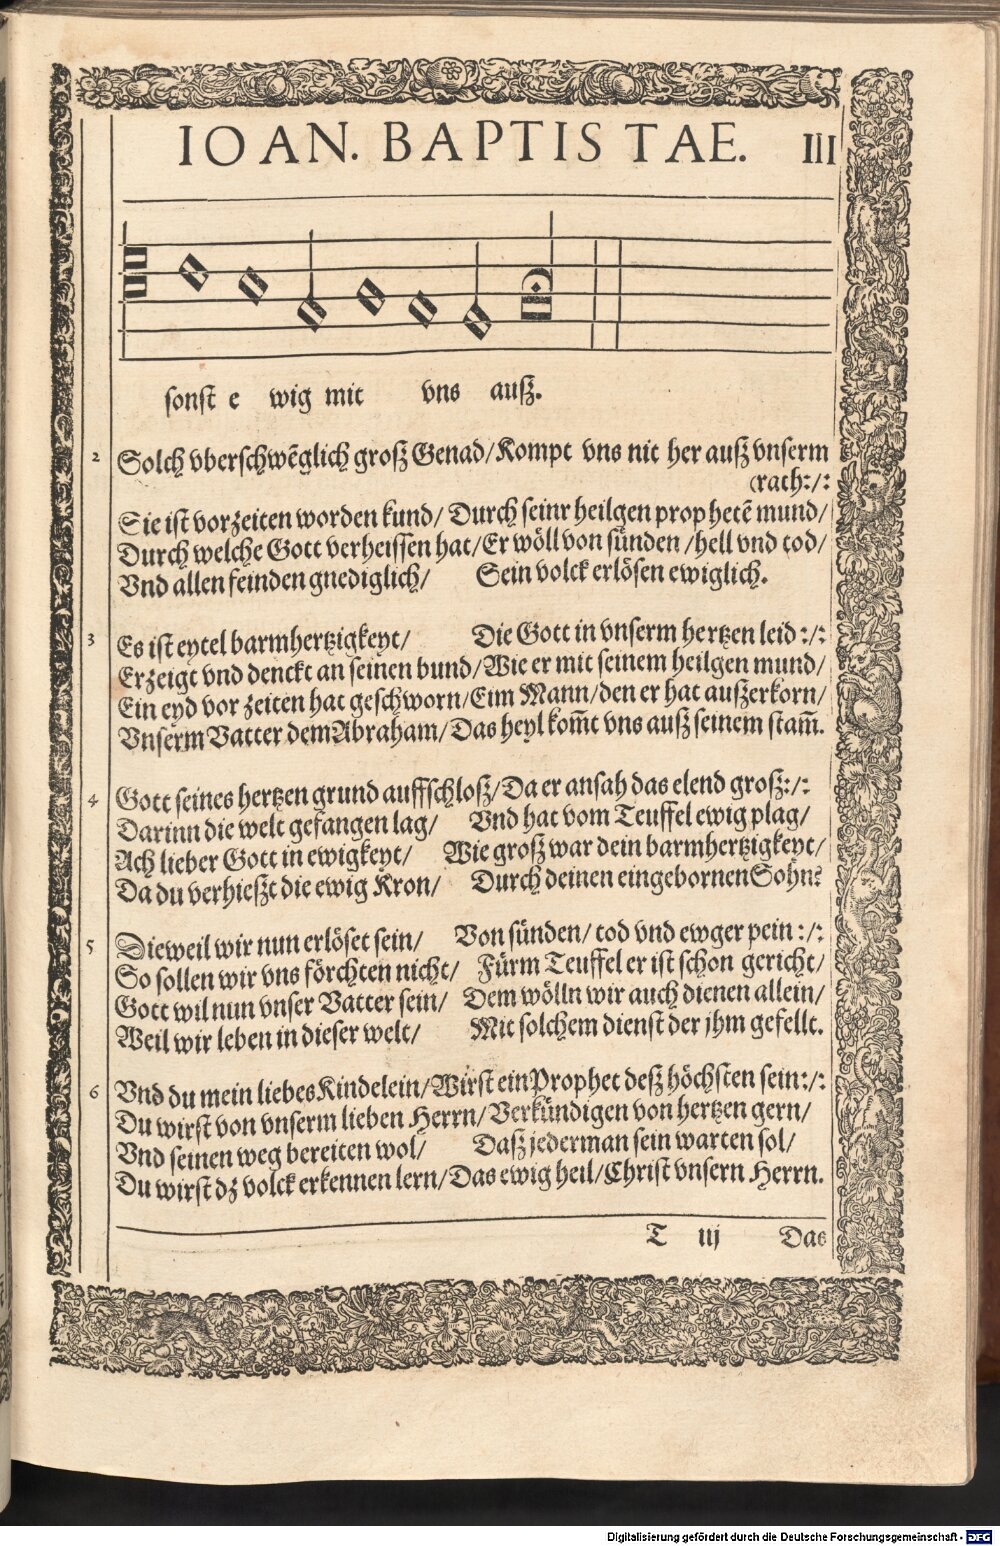 IOAN. BAPTISTAE. III
sonst e wig mit vns ausz.
2 Solch vberschwẽglich grosz Genad/Kompt vns nit her ausz vnserm
(rath:/:
Sie ist vorzeiten worden kund/ Durch seinr heilgen prophetẽ mund/
Durch welche Gott verheissen hat/Er wöll von sünden/hell vnd tod/
Vnd allen feinden gnediglich/ Sein volck erlösen ewiglich.
3 Es ist eytel barmhertzigkeyt/ Die Gott in vnserm hertzen leid:/:
Erzeigt vnd denckt an seinen bund/Wie er mit seinem heilgen mund/
Ein eyd vor zeiten hat geschworn/Eim Mann/den er hat auszerkorn/
Vnserm Vatter dem Abraham/Das heyl kom̃t vns ausz seinem stam̃.
4 Gott seines hertzen grund auffschlosz/Da er ansah das elend grosz:/:
Darinn die welt gefangen lag/ Vnd hat vom Teuffel ewig plag/
Ach lieber Gott in ewigkeyt/ Wie grosz war dein barmhertzigkeyt/
Da du verhieszt die ewig Kron/ Durch deinen eingebornen Sohn?
5 Dieweil wir nun erlöset sein/ Von sünden/ tod vnd ewger pein:/:
So sollen wir vns förchten nicht/ Fürm Teuffel er ist schon gericht/
Gott wil nun vnser Vatter sein/ Dem wölln wir auch dienen allein/
Weil wir leben in dieser welt/ Mit solchem dienst der jhm gefellt.
6 Vnd du mein liebes Kindelein/Wirst ein Prophet desz höchsten sein:/:
Du wirst von vnserm lieben Herrn/Verkündigen von hertzen gern/
Vnd seinen weg bereiten wol/ Dasz jederman sein warten sol/
Du wirst dz volck erkennen lern/Das ewig heil/Christ vnsern Herrn.
T iij Das
Digitalisierung gefördert durch die Deutsche Forschungsgemeinschaft - DFG